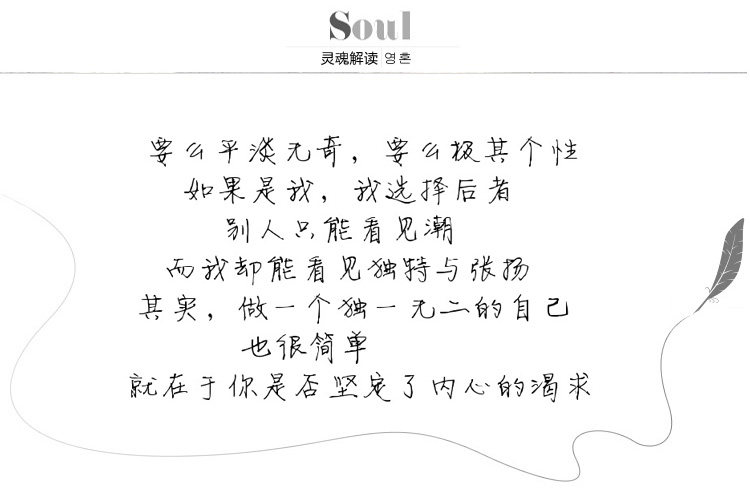 Soul
灵魂解读 영혼
要么平淡无奇，要么极其个性
如果是我，我选择后者
别人只能看见潮
而我却能看见独特与张扬
其实，做一个独一无二的自己
也很简单
就在于你是否坚定了内心的渴求